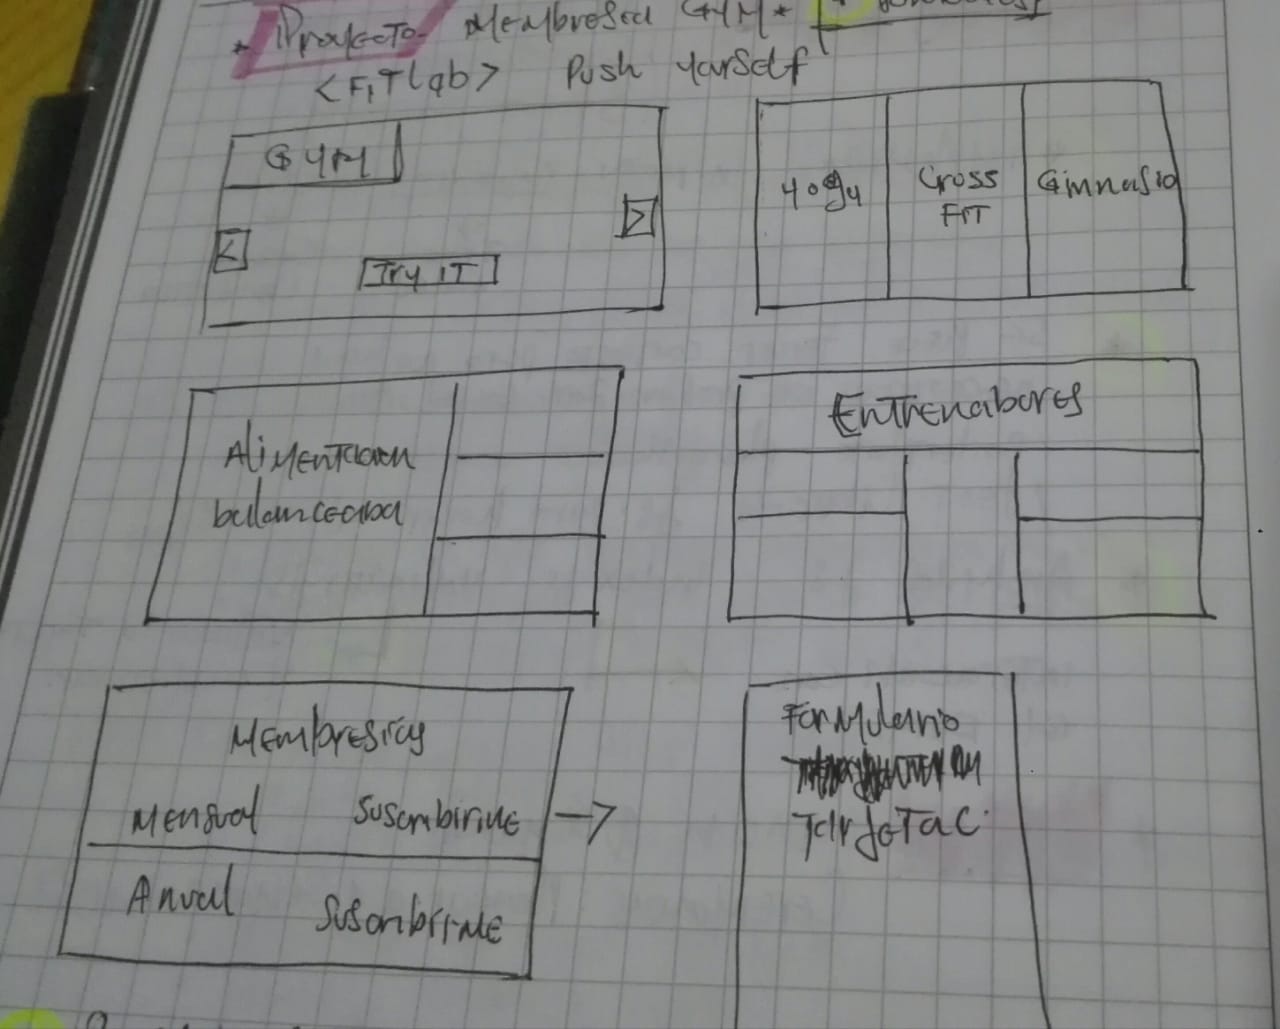 * Proyecto Membresia GYM *
<FITlab> Push YourSelf
GYM
<
>
Try IT
Yoga
Cross
FIT
Gimnasio
Alimentacion
balanceada
Entrenadores
Membresias
Mensual Suscribirme
Anual Suscribirme
Formulario
Tarjeta C.